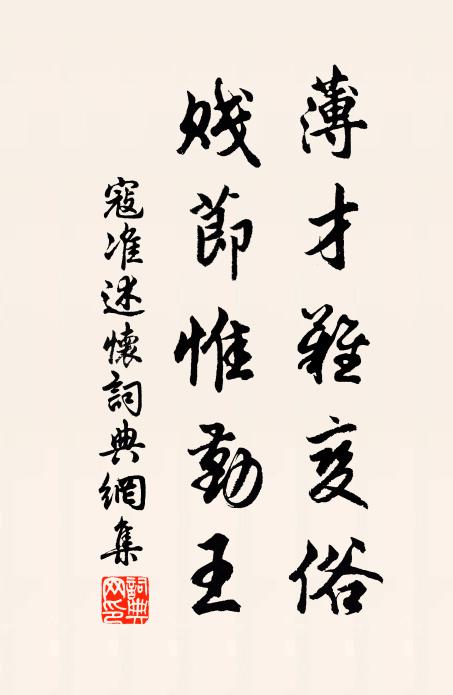 薄才難变俗
賤節惟勤王
寇准述懷詞典網集
詞典网印